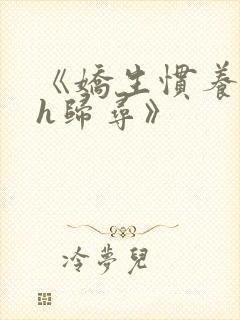 《嬌生慣養
h歸尋》
冷夢兒